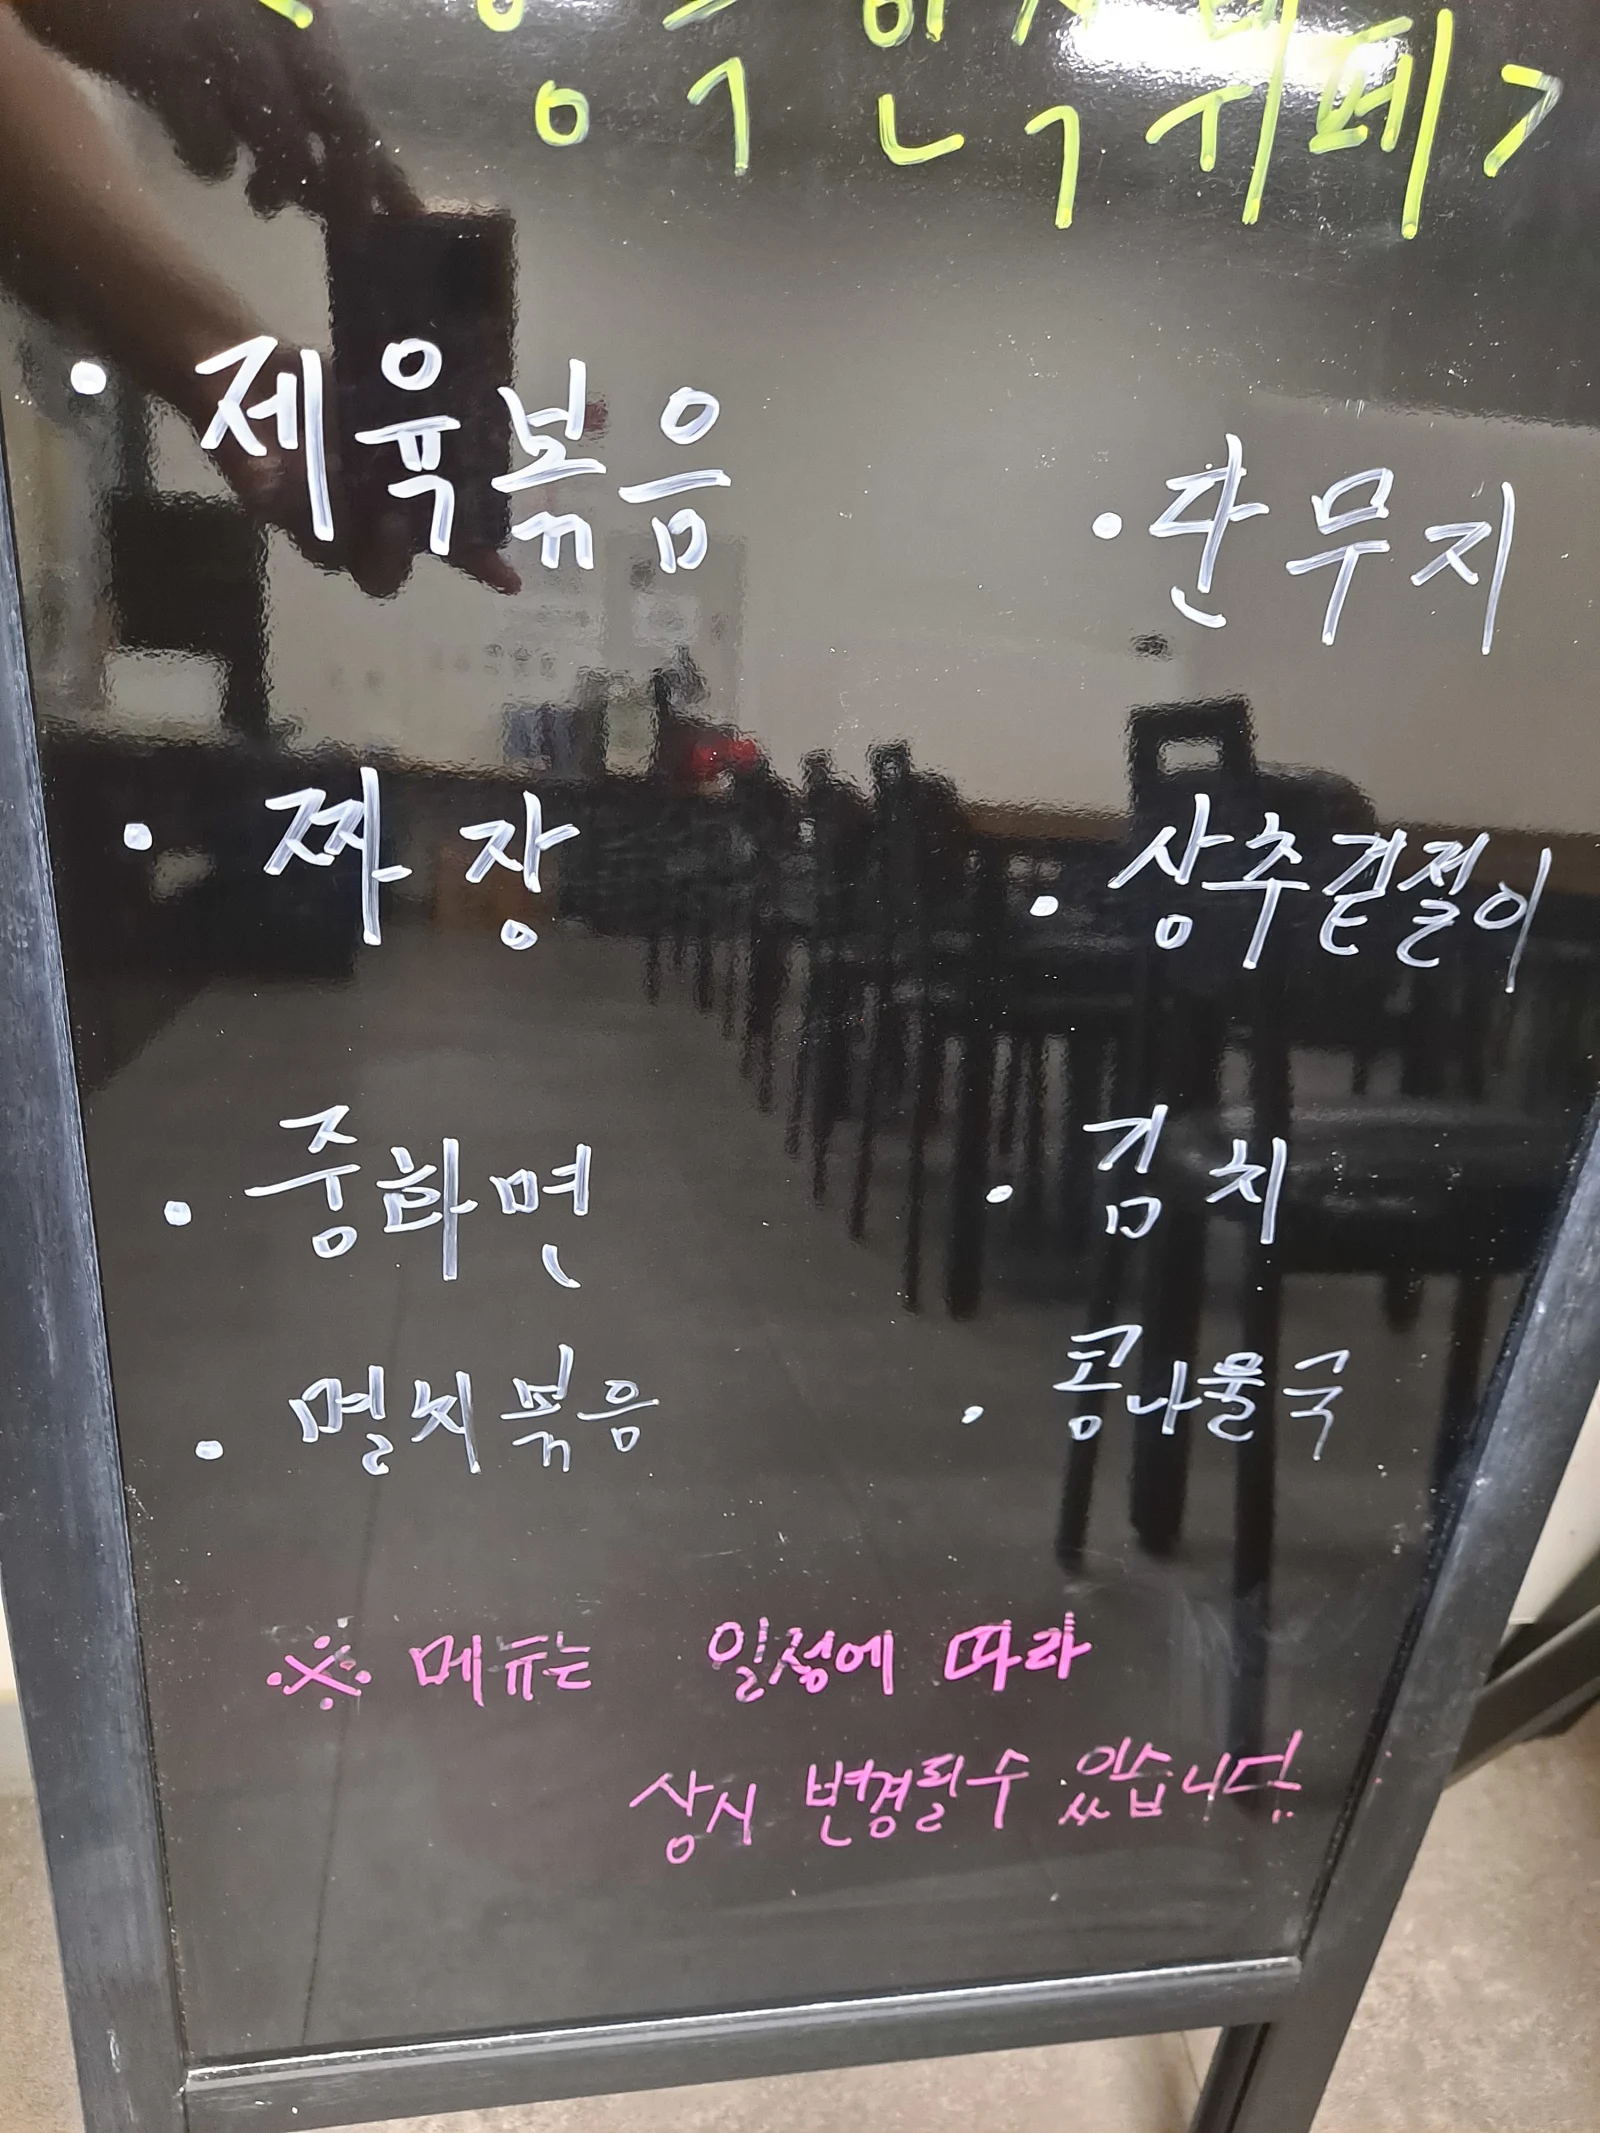 · 제육볶음
· 단무지
· 짜장
· 상추겉절이
· 중화면
· 김치
· 멸치볶음
· 콩나물국
※ 메뉴는 일정에 따라
상시 변경될수 있습니다.